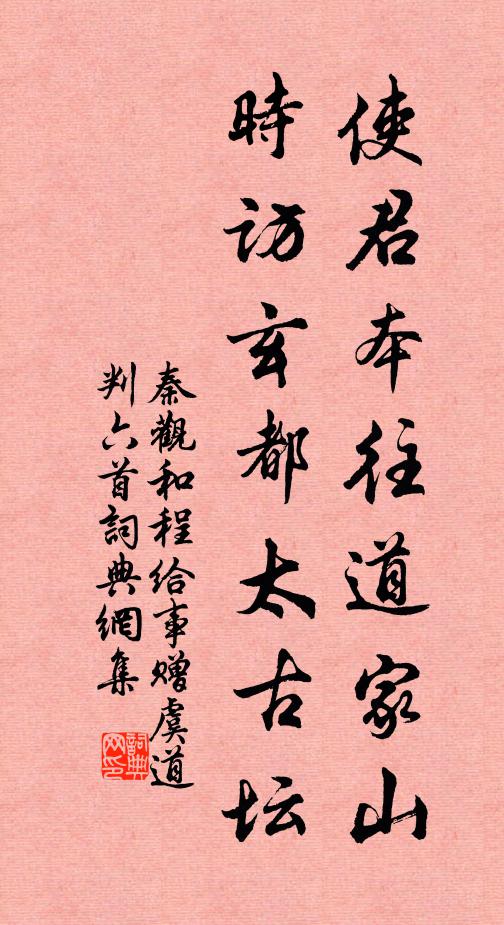 使君本往道家山
時訪玄都太古坛
秦觀和程給事赠虞道
判六首詞典網集
詞典
网印